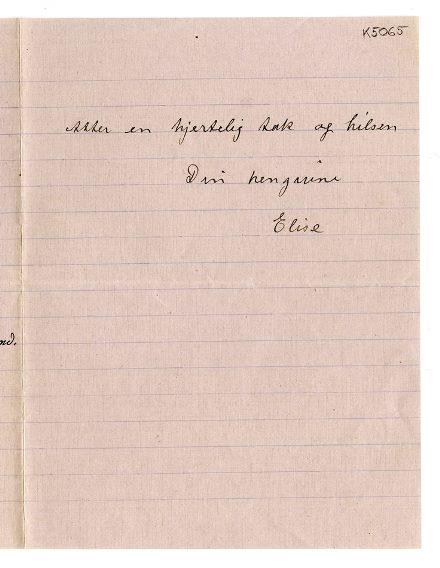 K5065
atter en hjertelig tak og hilsen
Din hengivne
Elise
nd.